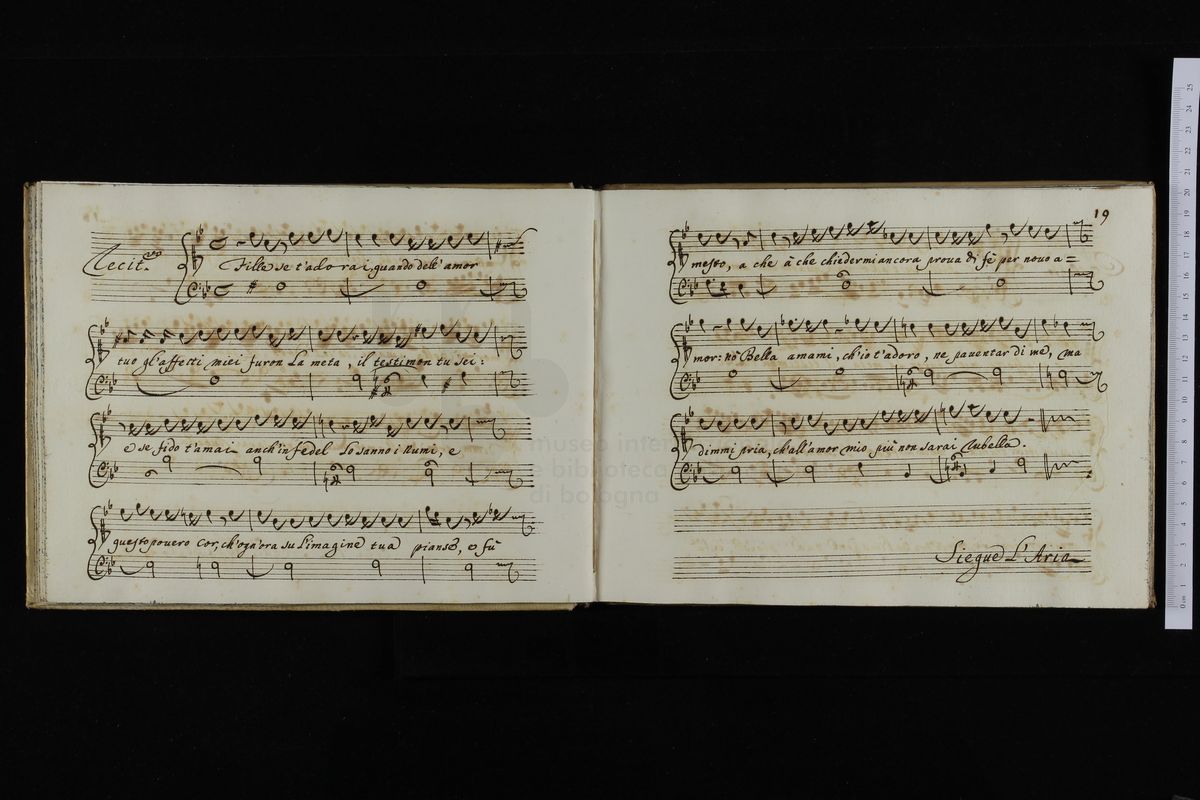 Recit.vo
Fille se t'adorai, quando dell'amor
tuo gl'affetti miei furon La meta, il testimon tu sei:
e se fido t'amai anch'infedel Lo sanno i Numi, e
questo povero Cor, ch'ogn'ora su L'imagine tua pianse, e fù
19
mesto, a che à che chiedermi ancora prova di fè per novo a=
mor: nò Bella amami, ch'io t'adoro, ne paventar di me, ma
dimmi pria, ch'all'amor mio più non sarai Rubella.
Siegue L'Aria
museo inter
e biblioteca
di bologna